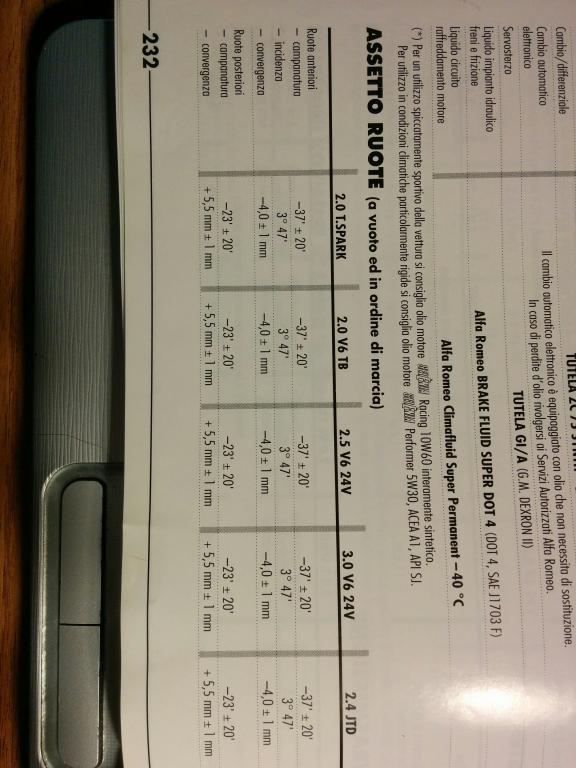 Cambio/differenziale
TUTELA
Cambio automatico
elettronico
Il cambio automatico elettronico è equipaggiato con olio che non necessita di sostituzione.
In caso di perdite d'olio rivolgersi ai Servizi Autorizzati Alfa Romeo.
Servosterzo
TUTELA GI/A (G.M. DEXRON II)
Liquido impianto idraulico
freni e frizione
Alfa Romeo BRAKE FLUID SUPER DOT 4 (DOT 4, SAE J1703 F)
Liquido circuito
raffreddamento motore
Alfa Romeo Climafluid Super Permanent – 40 °C
(*) Per un utilizzo spiccatamente sportivo della vettura si consiglia olio motore Racing 10W60 interamente sintetico.
Per utilizzo in condizioni climatiche particolarmente rigide si consiglia olio motore Performer 5W30, ACEA A1, API SJ.
ASSETTO RUOTE (a vuoto ed in ordine di marcia)
2.0 T.SPARK 2.0 V6 TB 2.5 V6 24V 3.0 V6 24V 2.4 JTD
Ruote anteriori
– campanatura –37' ± 20' –37' ± 20' –37' ± 20' –37' ± 20' –37' ± 20'
– incidenza 3° 47' 3° 47' 3° 47' 3° 47' 3° 47'
– convergenza –4,0 ± 1 mm –4,0 ± 1 mm –4,0 ± 1 mm –4,0 ± 1 mm –4,0 ± 1 mm
Ruote posteriori
– campanatura –23' ± 20' –23' ± 20' –23' ± 20' –23' ± 20' –23' ± 20'
– convergenza + 5,5 mm ± 1 mm + 5,5 mm ± 1 mm + 5,5 mm ± 1 mm + 5,5 mm ± 1 mm + 5,5 mm ± 1 mm
232